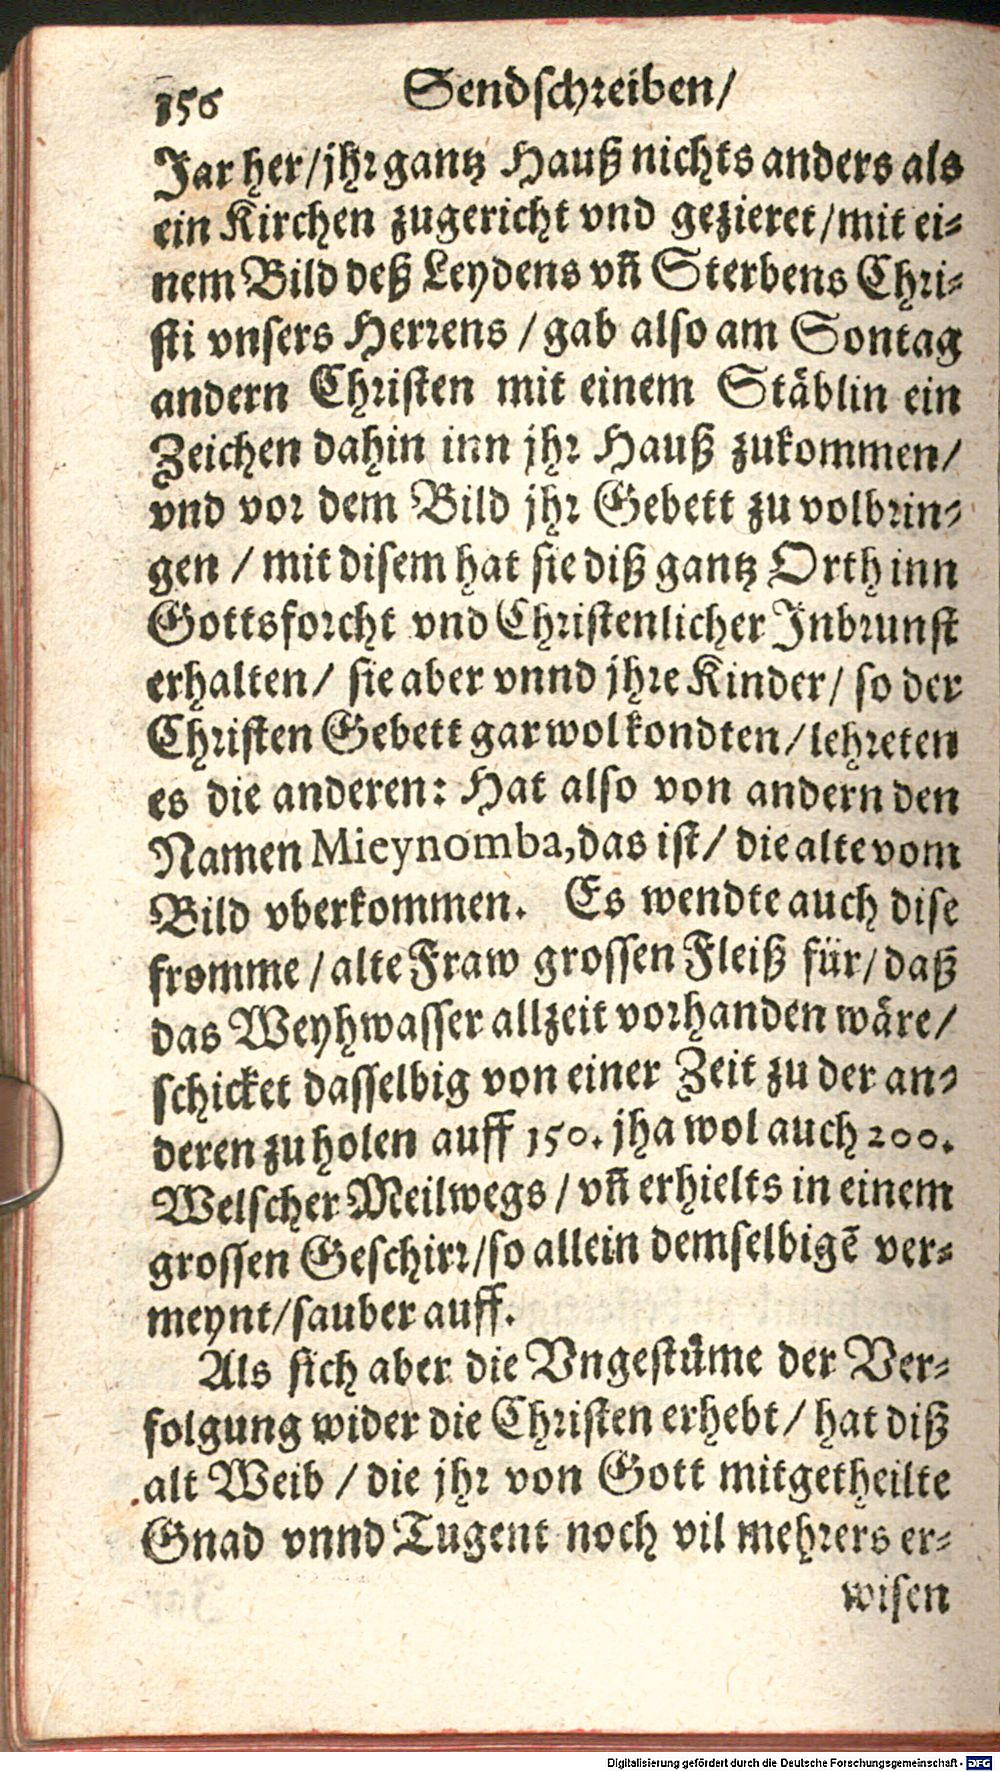 156 Sendschreiben/
Jar her/jhr gantz Hauß nichts anders als
ein Kirchen zugericht vnd gezieret/mit ei-
nem Bild deß Leydens vñ Sterbens Chri-
sti vnsers Herrens /gab also am Sontag
andern Christen mit einem Stäblin ein
Zeichen dahin inn jhr Hauß zukommen/
vnd vor dem Bild jhr Gebett zu volbrin-
gen / mit disem hat sie diß gantz Orth inn
Gottsforcht vnd Christenlicher Inbrunst
erhalten/ sie aber vnnd jhre Kinder/ so der
Christen Gebett gar wol kondten/lehreten
es die anderen: Hat also von andern den
Namen Mieynomba,das ist/ die alte vom
Bild vberkommen. Es wendte auch dise
fromme /alte Fraw grossen Fleiß für/ daß
das Weyhwasser allzeit vorhanden wäre/
schicket dasselbig von einer Zeit zu der an-
deren zu holen auff 150. jha wol auch 200.
Welscher Meilwegs / vñ erhielts in einem
grossen Geschirr/so allein demselbigẽ ver-
meynt/sauber auff.
Als sich aber die Vngestüme der Ver-
folgung wider die Christen erhebt/ hat diß
alt Weib / die jhr von Gott mitgetheilte
Gnad vnnd Tugent noch vil mehrers er-
wisen
Digitalisierung gefördert durch die Deutsche Forschungsgemeinschaft - DFG